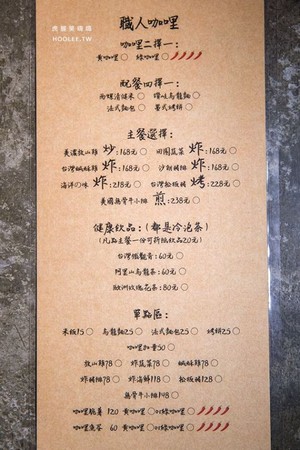 虎麗笑嘻嘻
HOOLEE.TW
職人咖哩
咖哩二擇一:
黃咖哩○ 綠咖哩○
配餐四擇一:
西螺清插米○ 讚岐烏龍麵○
法式麵包○ 蔥式烤餅○
主餐選擇:
美濃放山雞 炒:168元 田園蔬菜 炸:168元
台灣鹹酥雞 炸:168元 沙朗豬排 炸:168元
海洋の味 炸:218元 台灣松板豬 烤:228元
美國無骨牛小排 煎:238元
健康飲品:(都是冷泡茶)
(凡點主餐一份可折抵飲品20元)
台灣鐵觀音:60元○
阿里山烏龍茶:60元○
歐洲玫瑰花茶:80元○
單點區:
米飯15○ 烏龍麵25○ 法式麵包25○ 烤餅25○
咖哩加量50○
放山雞78○ 炸蔬菜78○ 鹹酥雞78○
炸豬排78○ 炸海鮮118○ 松板豬128○
無骨牛小排148○
咖哩脆薯 120 黃咖哩○or綠咖哩○
咖哩魚蛋 60 黃咖哩○or綠咖哩○